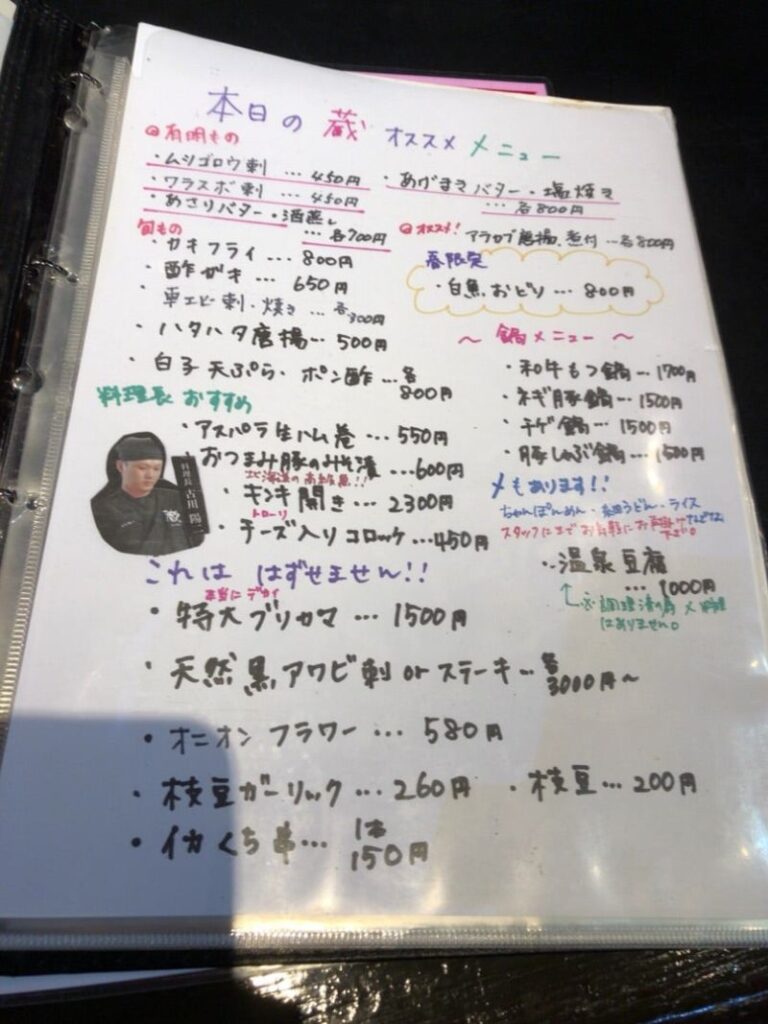 本日の 蔵 オススメ メニュー
有明もの
・ムツゴロウ刺 … 450円
・ワラスボ刺 … 450円
・あさりバター・酒蒸し
… 各700円
・あげまきバター・塩焼き
… 各800円
オススメ! アラカブ唐揚、煮付 … 各800円
旬もの
・カキフライ … 800円
・酢ガキ … 650円
・車エビ刺・焼き … 各
・ハタハタ唐揚 … 500円
・白子 天ぷら・ポン酢 … 各
800円
春限定
・白魚おどり … 800円
〜 鍋メニュー 〜
・和牛もつ鍋 … 1700円
・ネギ豚鍋 … 1500円
・チゲ鍋 … 1500円
・豚しゃぶ鍋 … 1500円
〆もあります!!
ちゃんぽんめん・うどん・ライス
スタッフにまでお気軽にお声掛け
下さい
・温泉豆腐
… 1000円
料理長 おすすめ
・アスパラ生ハム巻 … 550円
・おつまみ豚のみそ漬 … 600円
北海道の高級魚!!
・キンキ開き … 2300円
トローリ
・チーズ入りコロッケ … 450円
料理長 古川 陽
これは はずせません!!
本当に デカイ
・特大ブリカマ … 1500円
・天然黒アワビ刺 or ステーキ … 各
3000円〜
・オニオンフラワー … 580円
・枝豆ガーリック … 260円
・枝豆 … 200円
・イカくち串 … 1本
150円